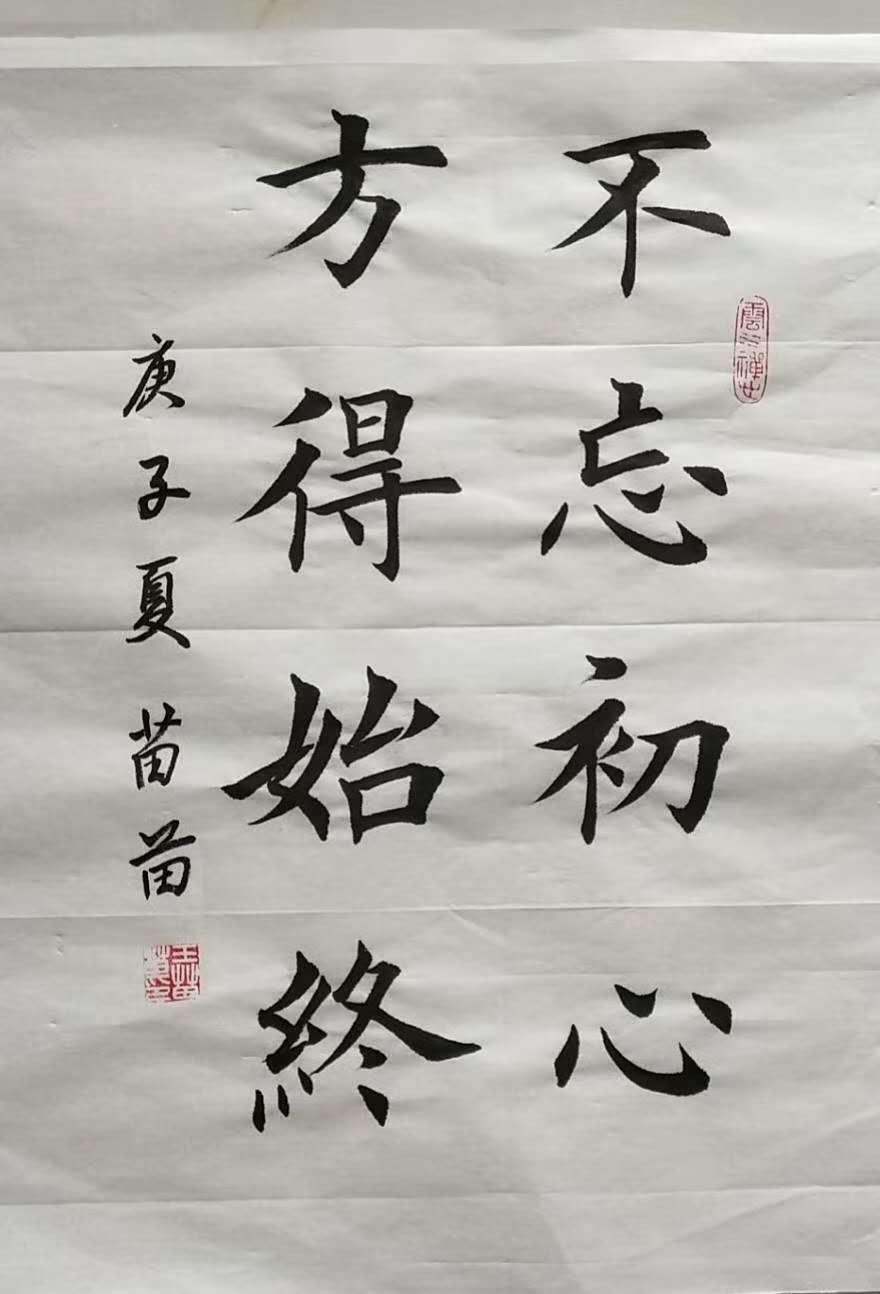 不忘初心
方得始終
庚子夏苗苗